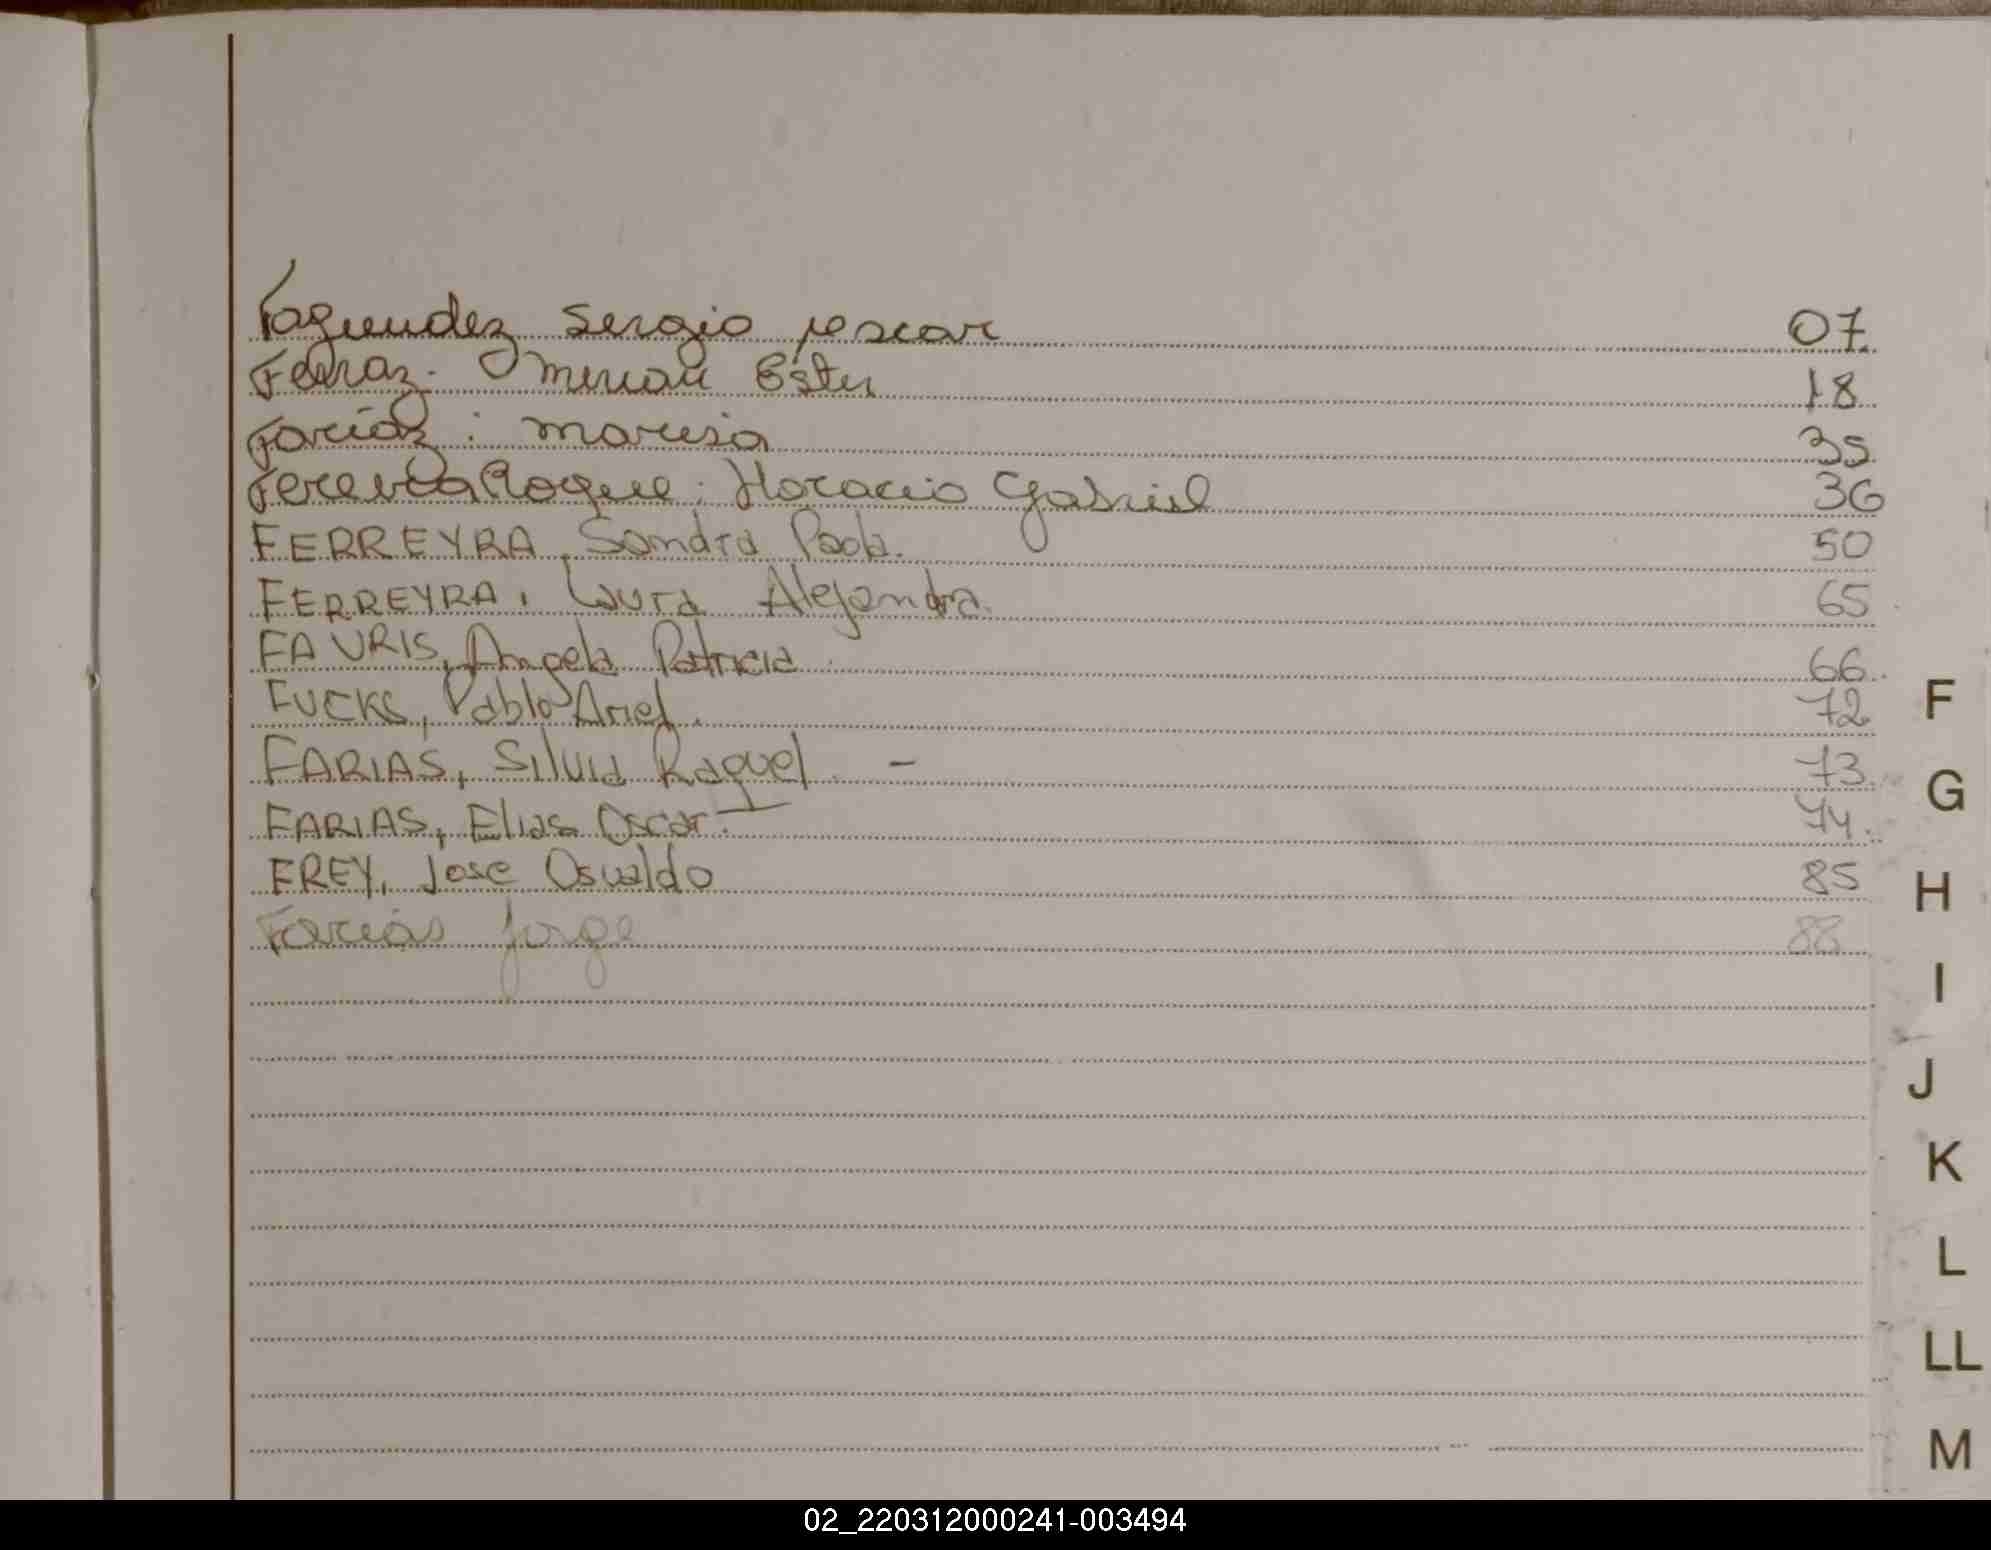 Fagundez Sergio oscar 07
Ferraz. Mirian Ester 18
Fariaz: marisa 35
Fereyra Roque. Horacio Gabriel 36
FERREYRA, Sandra Paola. 50
FERREYRA, Laura Alejandra. 65
FAVRIS, Angela Patricia 66
FUCKS, Pablo Ariel. 72
FARIAS, Silvia Raquel. - 73
FARIAS, Elias Oscar.- 74.
FREY, Jose Osvaldo 85
Farias Jorge 88
F
G
H
I
J
K
L
LL
M
02_220312000241-003494